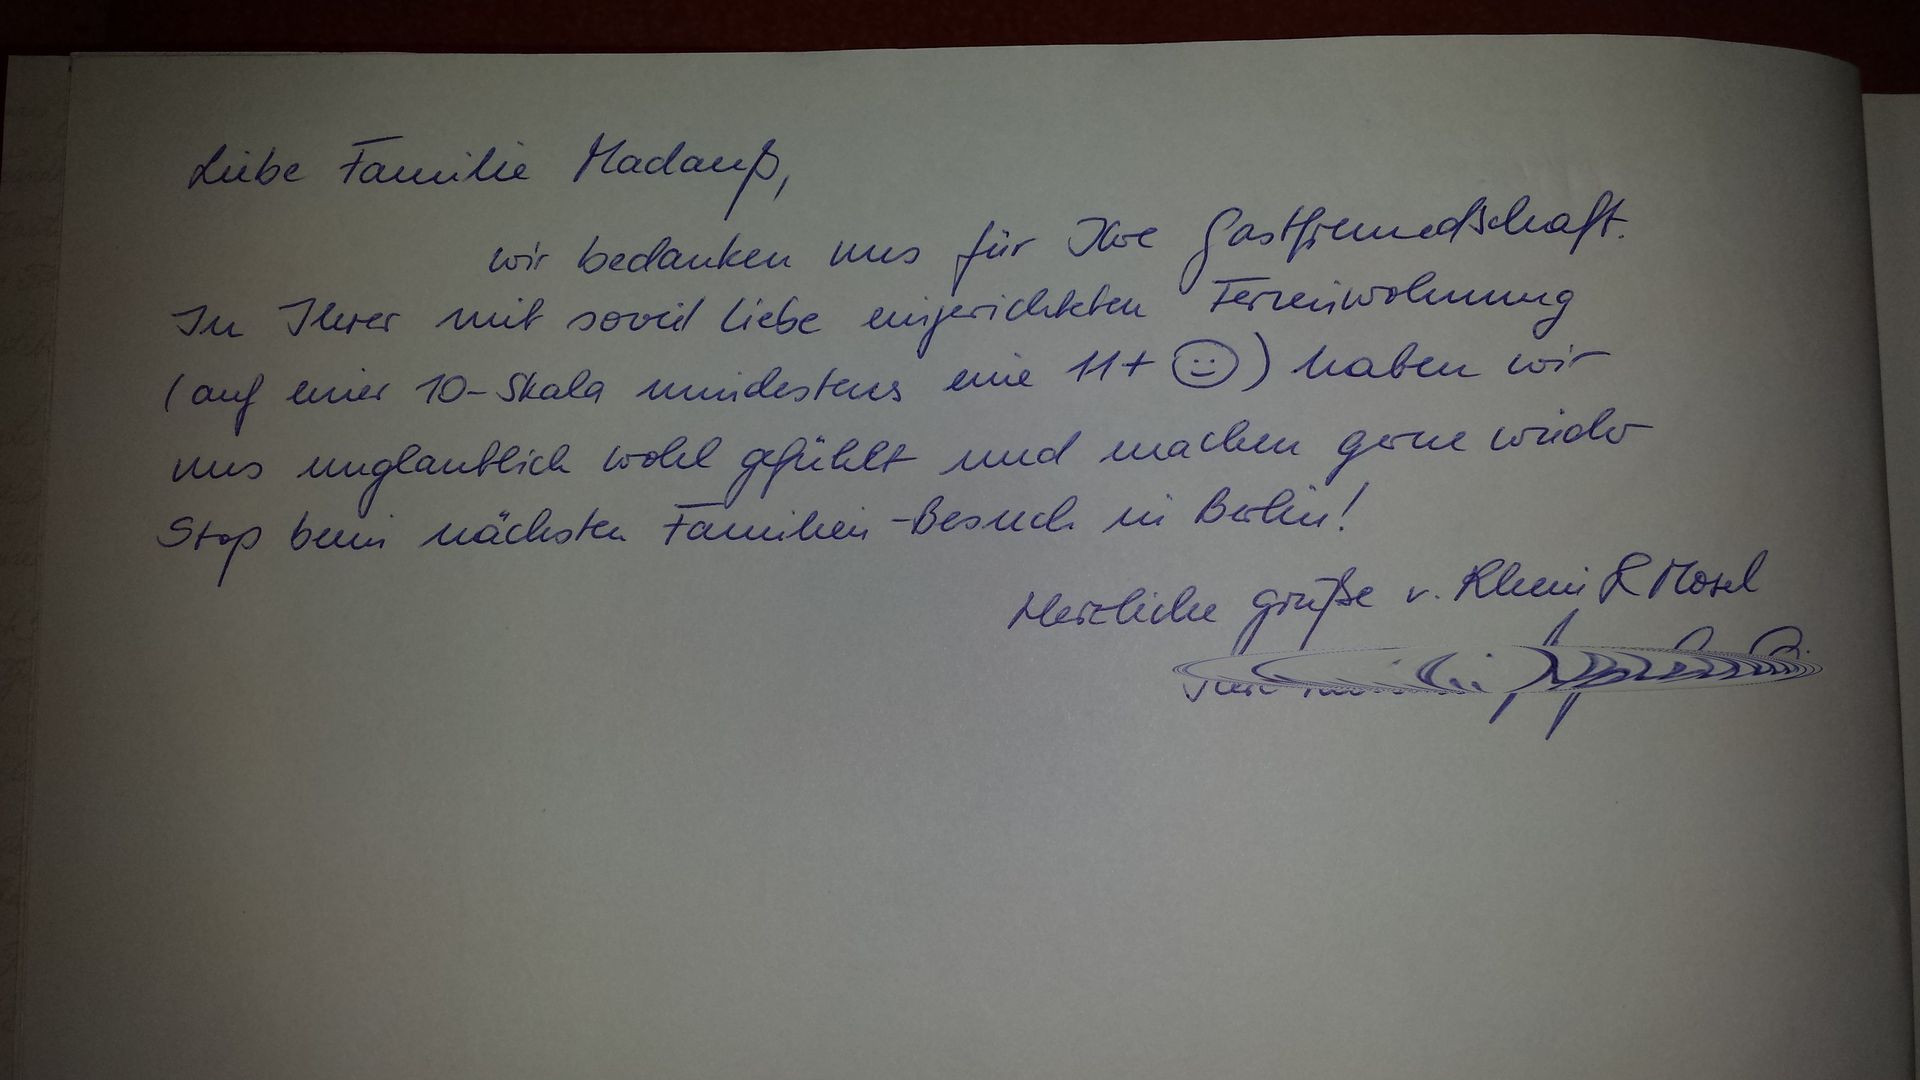 Liebe Familie Madauß,
wir bedanken uns für Ihre Gastfreundschaft.
In Ihrer mit soviel Liebe eingerichteten Ferienwohnung
(auf einer 10-Skala mindestens eine 11+ ☺) haben wir
uns unglaublich wohl gefühlt und machen gerne wieder
Stop beim nächsten Familien-Besuch in Berlin!
Herzliche Grüße v. Rhein & Mosel